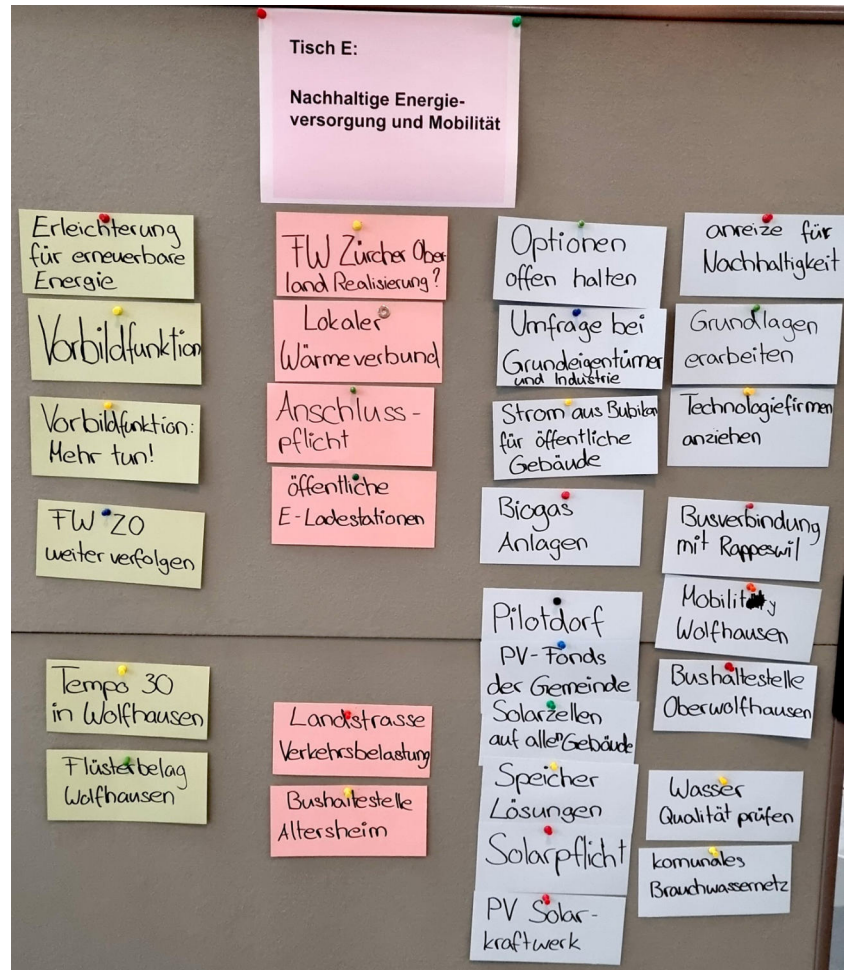 Tisch E:
Nachhaltige Energie-
versorgung und Mobilität
Erleichterung
für erneuerbare
Energie
Vorbildfunktion
Vorbildfunktion:
Mehr tun!
FW ZO
weiter verfolgen
Tempo 30
in Wolfhausen
Flüsterbelag
Wolfhausen
FW Zürcher Ober
land Realisierung?
Lokaler
Wärmeverbund
Anschluss-
pflicht
öffentliche
E-Ladestationen
Landstrasse
Verkehrsbelastung
Bushaltestelle
Altersheim
Optionen
offen halten
Umfrage bei
Grundeigentümer
und Industrie
Strom aus Bubikon
für öffentliche
Gebäude
Biogas
Anlagen
Pilotdorf
PV-Fonds
der Gemeinde
Solarzellen
auf allen Gebäude
Speicher
Lösungen
Solarpflicht
PV Solar-
kraftwerk
anreize für
Nachhaltigkeit
Grundlagen
erarbeiten
Technologiefirmen
anziehen
Busverbindung
mit Rappeswil
Mobility
Wolfhausen
Bushaltestelle
Oberwolfhausen
Wasser
Qualität prüfen
komunales
Brauchwassernetz